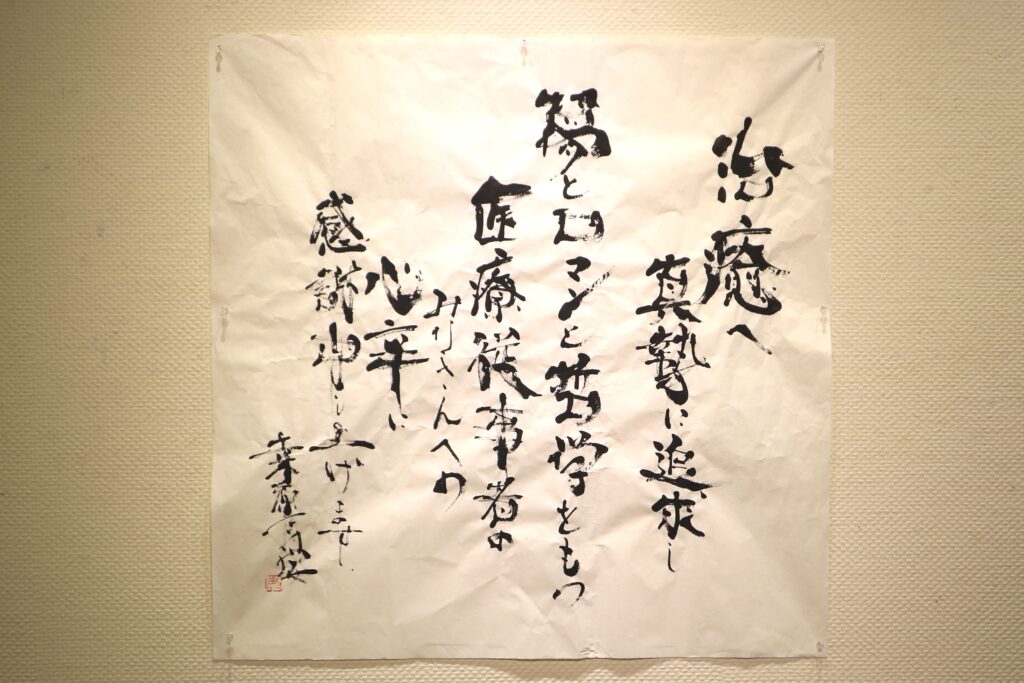 治癒へ
真摯に追求し
とロマンと哲学をもつ
医療従事者の
みなさんへの
心幸に
感謝申し上げます